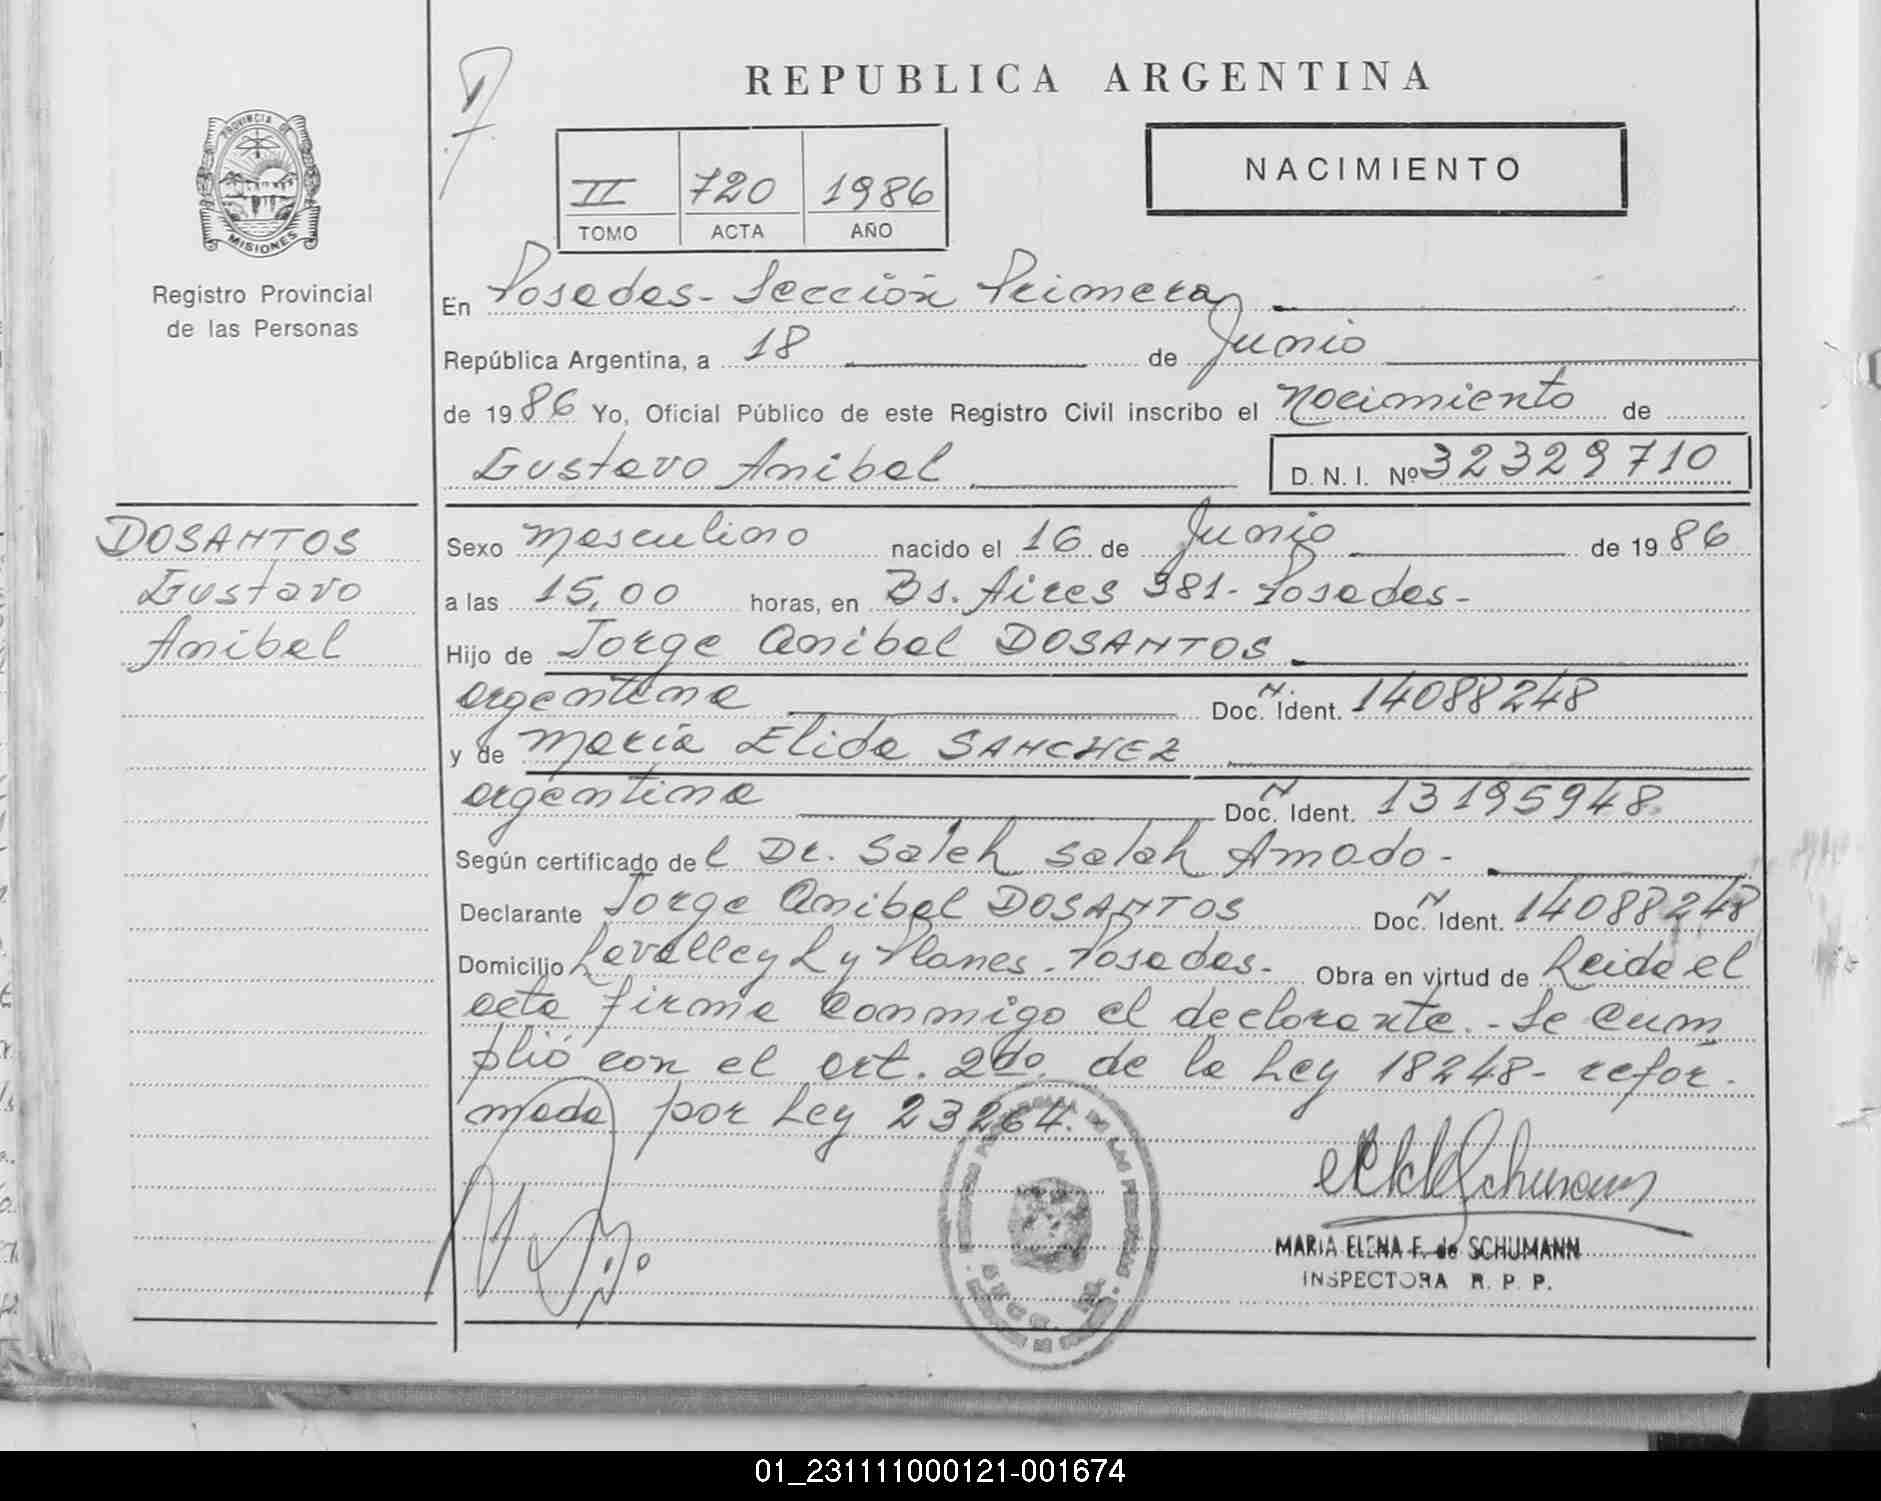 REPUBLICA ARGENTINA
PROVINCIA DE
MISIONES
Registro Provincial
de las Personas
II 720 1986
TOMO ACTA AÑO
NACIMIENTO
En Posadas - Sección Primera
República Argentina, a 18 de Junio
de 1986 Yo, Oficial Público de este Registro Civil inscribo el Nacimiento de
Gustavo Anibal D. N. I. Nº 32329710
DOSANTOS
Gustavo
Anibal
Sexo masculino nacido el 16 de Junio de 1986
a las 15,00 horas, en Bs. Aires 381 - Posadas -
Hijo de Jorge Anibal DOSANTOS
argentina Doc. N. Ident. 14088248
y de María Elida SANCHEZ
argentina Doc. N Ident. 13195948
Según certificado del Dr. Saleh Salah Amado -
Declarante Jorge Anibal DOSANTOS Doc. N Ident. 14088248
Domicilio Lavalley L y Planes - Posadas - Obra en virtud de Leida el
acta firma conmigo el declarante. - Se cum
plió con el art. 2do. de la Ley 18248 - refor-
mada por Ley 23264.
MARIA ELENA F. de SCHUMANN
INSPECTORA R. P. P.
01_231111000121-001674